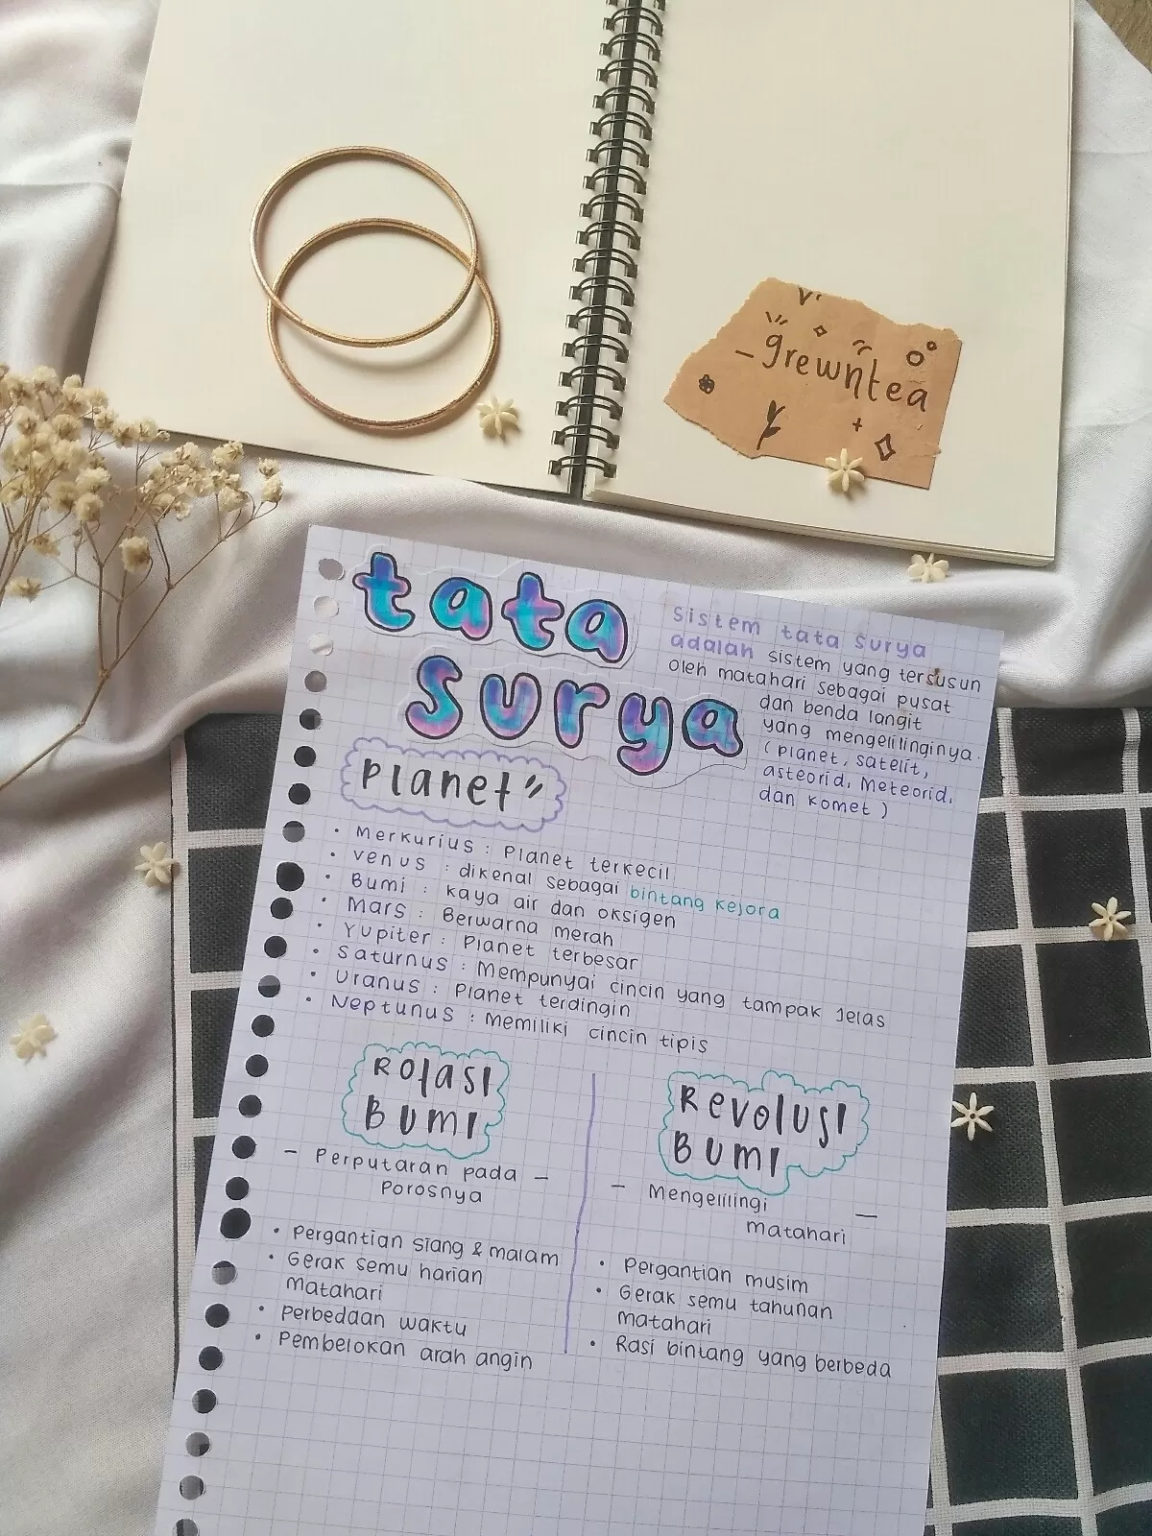 - grewntea
tata
surya
sistem tata surya
adalah sistem yang tersusun
oleh matahari sebagai pusat
dan benda langit
yang mengelilinginya.
(planet, satelit,
asteorid, meteorid,
dan komet)
Planet"
• Merkurius : Planet terkecil
• Venus : dikenal sebagai bintang kejora
• Bumi : kaya air dan oksigen
• Mars : Berwarna merah
• Yupiter : Planet terbesar
• Saturnus : Mempunyai cincin yang tampak jelas
• Uranus : Planet terdingin
• Neptunus : Memiliki cincin tipis
Rotasi
Bumi
- Perputaran pada -
Porosnya
• Pergantian siang & malam
• Gerak semu harian
matahari
• Perbedaan waktu
• Pembelokan arah angin
Revolusi
Bumi
- Mengelilingi
matahari -
• Pergantian musim
• Gerak semu tahunan
matahari
• Rasi bintang yang berbeda